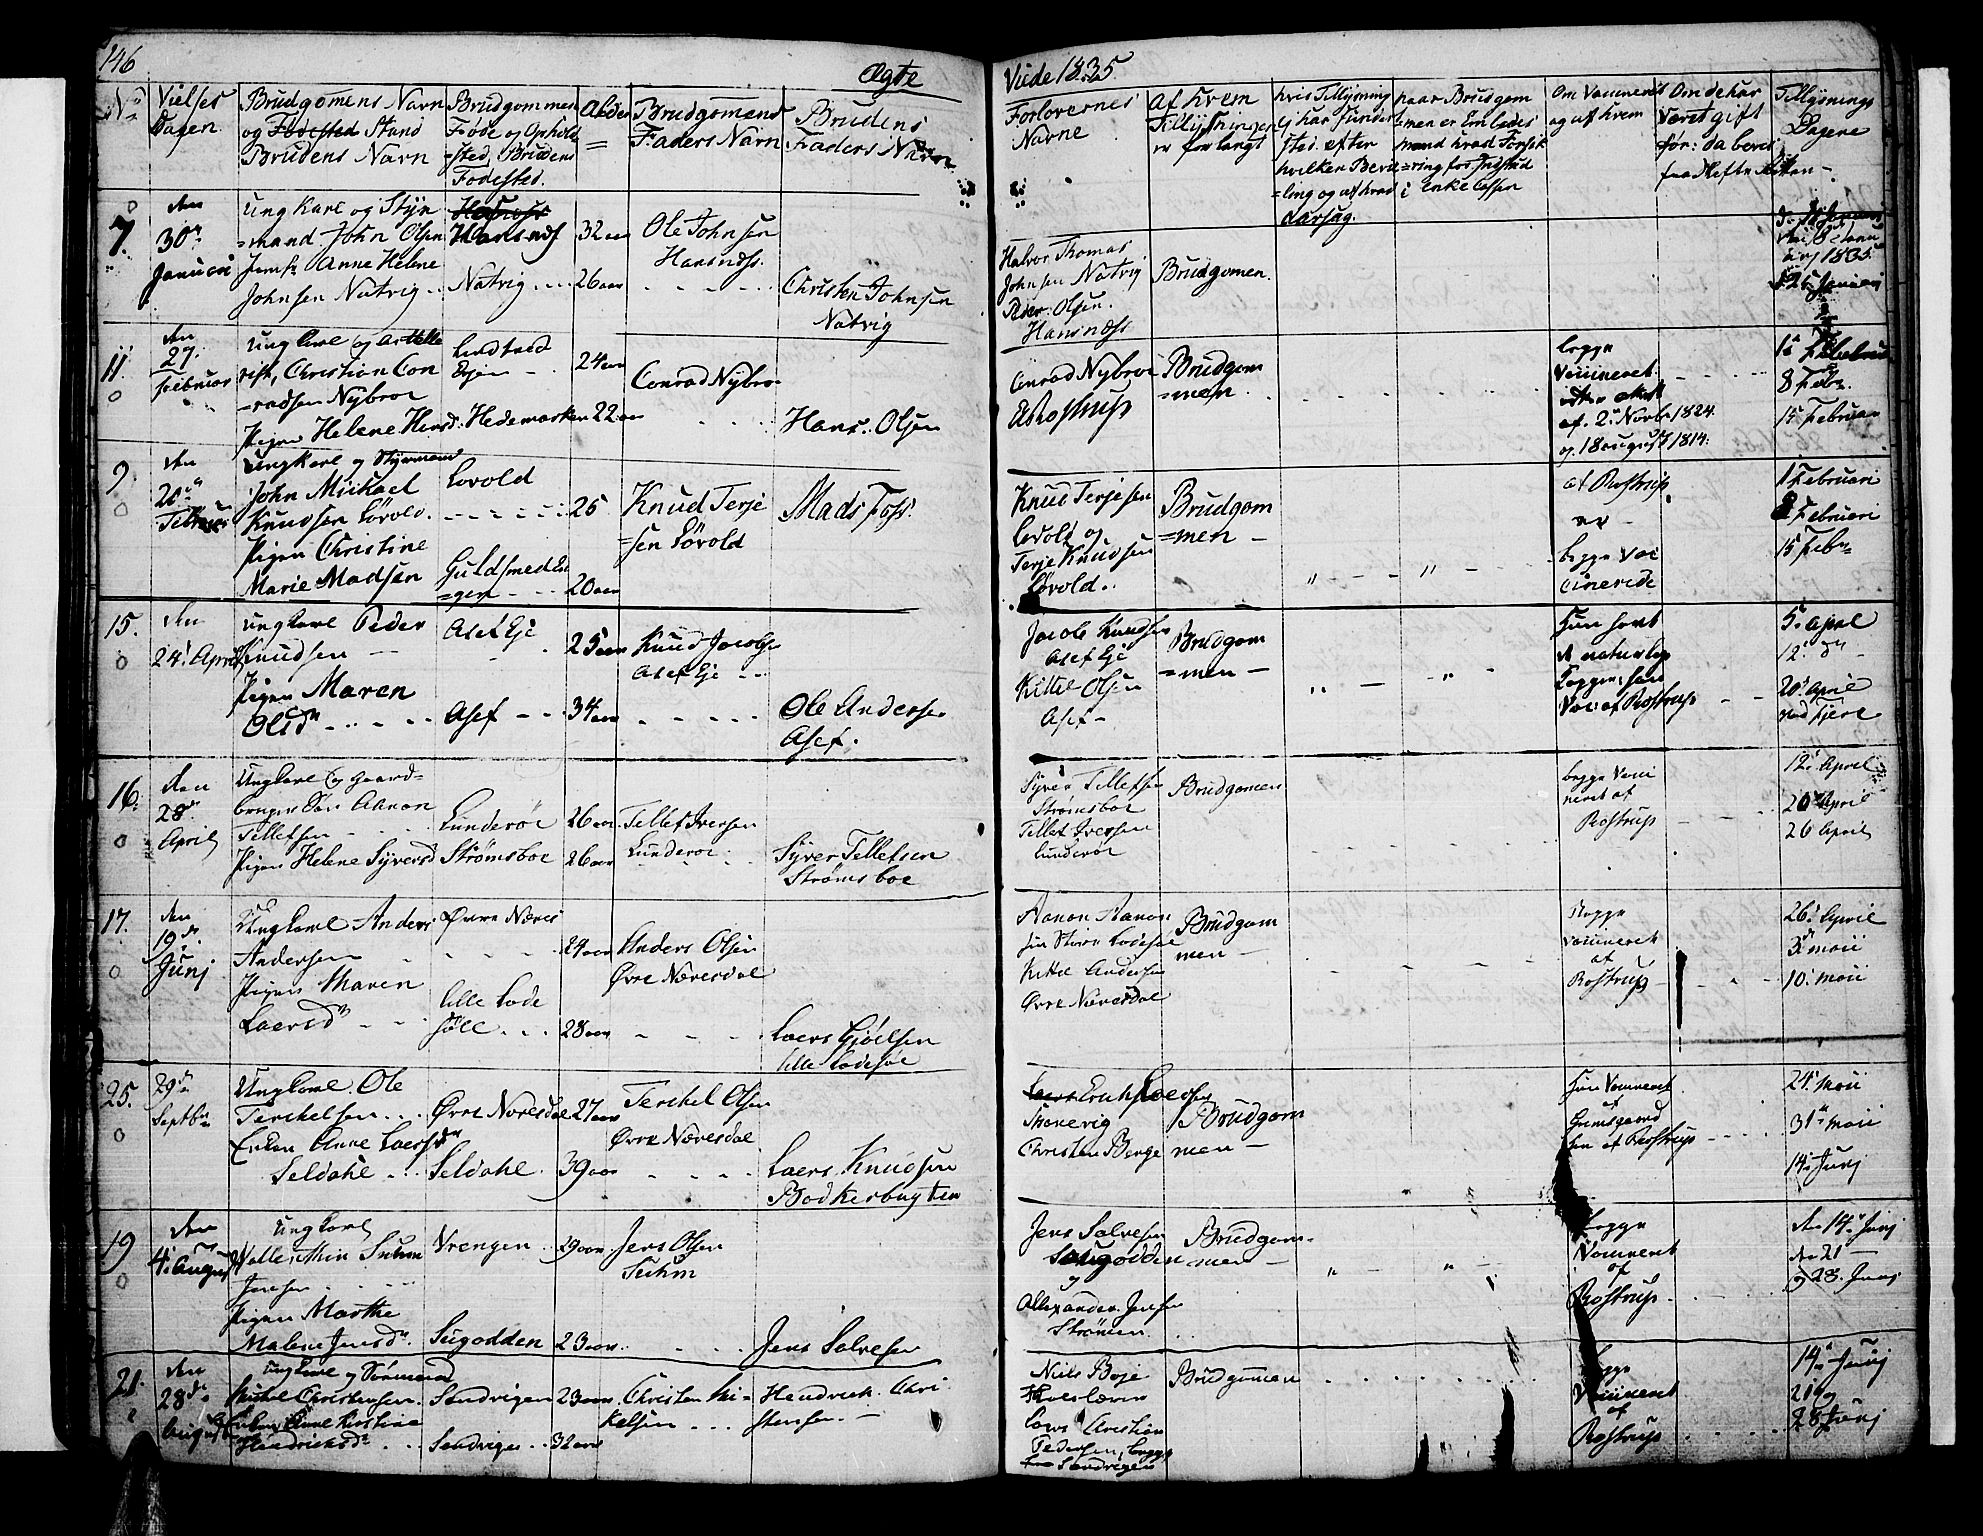 146
Ægte
Viede 1835
No
Vielses Dagen
Brudgomens Navn og Fødested Stand Brudens Navn
Brudgommens Føde og Ophold =sted, Brudens Fødested.
Alder =
Brudgomens Faders Navn
Brudens Faders Navn
Forlovernes Navne
Af Hvem Tillysningen er forlangt
hvis Tillysning ej har funder Sted. efter hvilken Bevil =ling og af hvad Aarsag.
naar Brudgom =men er Enkemand hvad Forsik =ring for Indstid i Enke Cassen
Om Vaccineret og af hvem
Om de har Været gift før: da beviis fra Skifte Retten –
Tillysnings Dagene
7.
den 30te Januari
Ungkarl og Styr =mand John Olsen
Jomfr Anne Helene Johnsen Natvig
Hansnæs
Natvig
32 aar
26 aar
Ole Johnsen Hansnæss.
Christen Johnsen Natvig
Halvor Thomas Johnsen Natvig
Peder Olsen Hansnæss
Brudgomen.
18 Januari 1835
25 Januari
11.
den 27. Februar
Ungkarl og Christian Con =radsen Nybroe
Pigen Helene Hansd.
Hedemarken
24 aar
22 aar
Conrad Nybroe
Hans. Olsen
Conrad Nybroe
A Rostrup
Brudgom =men.
begge Vaccineret
af. 2. Novbr 1824. og 18 august 1814.
1te Februar
8 Febr.
15 Februar
9.
den 20de Februar
Ungkarl og Styrmand John Mickael Knudsen Løvold.
Pigen Christine Marie Madsen
Lovold
Guldsmed En =gen
25
20 aar
Knud Terje =sen Løvold
Mads Foss.
Knud Terjesen Løvold og Terje Knudsen Løvold.
Brudgom =men –
af Rostrup er – begge Vac cinerede
1 Februari
8 Februari
15 Febr
15.
den 24. April
Ungkarl Peder Knudsen
Pigen Maren Olsdr
Asef Eje
Asef
25 aar
34 aar
Knud Jacobsen Asef Eje
Ole Andersen Asef.
Jacob Knudsen Asef Eje
Kittel Olsen Asef –
Brudgom =men –
Hun havt de naturlige Kopper, han Vac: af Rostrup
5. April
12. do
20. April
16.
den 28de April
Ungkarl og Gaard= bruger Aanon Telletsen
Pigen Helene Syversd
Lunderøe
Strømsboe
26 aar
26 aar
Tellef Iversen Lunderøe
Syver Telletsen Strømsboe
Syver Telletsen Strømsboe
Tellef Iversen Lunderøe
Brudgomen
begge Vacci neret af Rostrup
12. April
20 April
26 April
17.
den 19de Junj
Ungkarl Anders Andersen
Pigen Maren Laersdr
Øvre Næres
Lille Lode søll
24 aar
28 aar
Anders Olsen Øvre Næresdal
Laers Gjøelsen Lille Lodesøl
Aanon Aanon sen Store Lodesøl
Kittel Andersen Øvre Næresdal
Brudgom men –
Begge vaccineret af Rostrup
26. April
3. Maii
10. Maii
25.
29de Septbr
Ungkarl Ole Terchelsen
Enken Anne Laersdr Seldahl
Øvre Næresdal
Seldahl
27 aar
39 aar
Terchel Olsen Øvre Næresdal
Laers Knudsen Bødkerbugten
Christen Berge
Brudgom men –
Hun Vaccineret af Grimsgaard han af Rostrup
24. Maii
31te Maii
14. Junj
19
den 4. August
Ungkarl Vallentin Suhm Jensen
Pigen Marthe Malene Jensdr.
Vrengen
Sugodden
29 aar
23 aar
Jens Olsen Suhm
Jens Salvesen
Jens Salvesen Sougodden og Allexander Jensen Strømen
Brudgom- men –
begge Vaccineret af Rostrup
den 14. Junj
den 21 –
og 28. Junj
21.
den 28de August
Ungkarl og Sømand Mickel Christensen.
Enken Anne Kirstine Hendricksdr
Sandvigen
Sandvigen
23 aar
32 aar
Christen Mi- kelsen
Hendrick Chri stensen. –
Niels Boje
Lars Christian Pedersen, begge Sandvigen
Brudgommen
begge Vaccineret af Rostrup
14. Junj
21 og
28 Junj